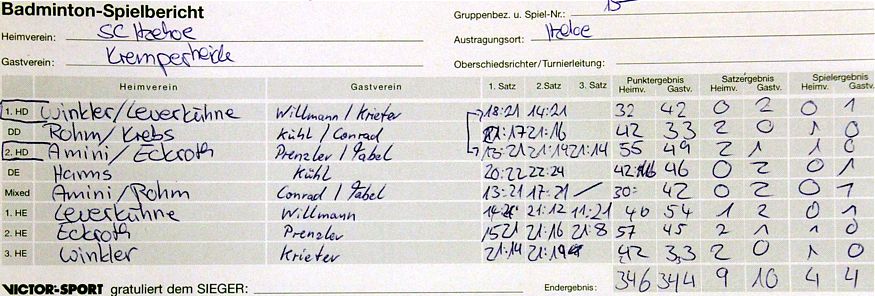 Badminton-Spielbericht
Gruppenbez. u. Spiel-Nr.: 15
Heimverein: SC Itzehoe
Austragungsort: Itzehoe
Gastverein: Kremperheide
Oberschiedsrichter/Turnierleitung:
Heimverein Gastverein 1. Satz 2.Satz 3. Satz Punktergebnis Heimv. Gastv. Satzergebnis Heimv. Gastv. Spielergebnis Heimv. Gastv.
1. HD Winkler/Leverkühne Willmann/Krieter 18:21 14:21 32 42 0 2 0 1
DD Rohm/Krebs Kühl/Conrad 21:17 21:16 42 33 2 0 1 0
2. HD Amini/Eckroth Prenzler/Gabel 13:21 21:14 21:14 55 49 2 1 1 0
DE Harms Kühl 20:22 22:24 42 46 0 2 0 1
Mixed Amini/Rohm Conrad/Gabel 13:21 17:21 30: 42 0 2 0 1
1. HE Leverkühne Willmann 21:12 11:21 54 1 2 0 1
2. HE Eckroth Prenzler 15 21 21:16 21:8 57 45 2 1 1 0
3. HE Winkler Krieter 21:14 21:19 42 33 2 0 1 0
VICTOR-SPORT gratuliert dem SIEGER: Endergebnis: 346 344 9 10 4 4